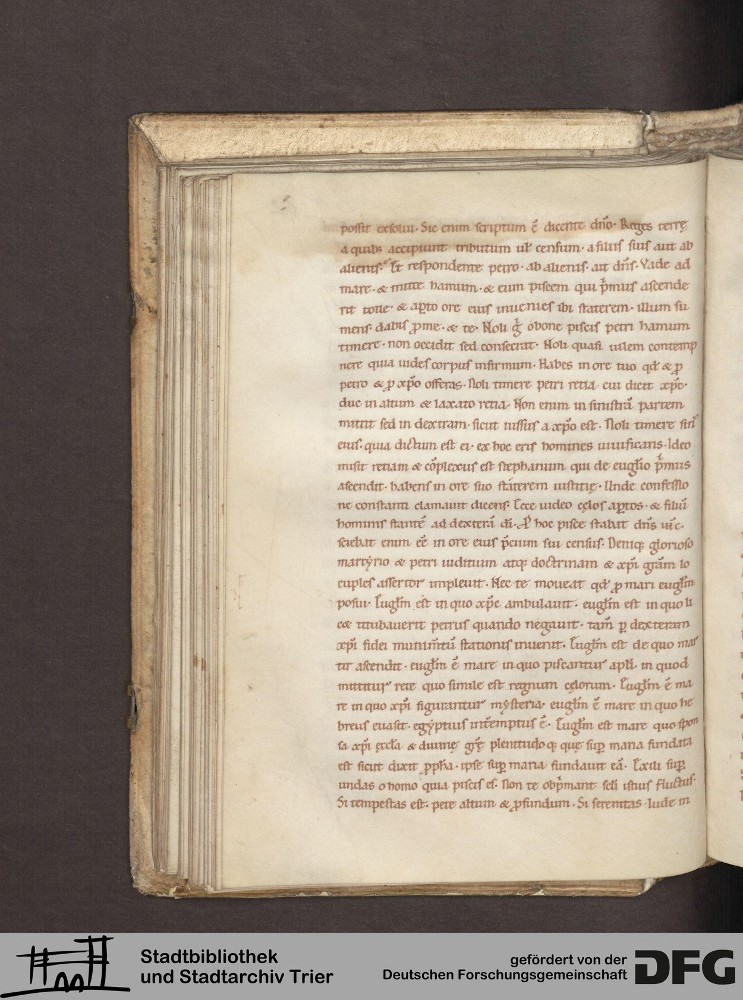 possit exsolui. Sic enim scriptum ē dicente dn̄o. Reges terrę
a quibꝰ accipiunt tributum uł censum. a filiis suis aut ab
alienis. Et respondente petro. ab alienis. ait dn̄s. Vade ad
mare. & mitte hamum. & eum piscem qui p̄mus ascende
rit tolle. & aꝑto ore eius inuenies ibi staterem. illum su
mens dabis ꝓ me. & te. Noli g̊ o bone piscis petri hamum
timere. non occidit sed consecrat. Noli quasi uilem contemp
nere quia uides corpus infirmum. Habes in ore tuo qd̄ & ꝓ
petro & ꝓ xp̄o offeras. Noli timere petri retia. cui dicit xp̄c.
duc in altum & laxato retia. Non enim in sinistrā partem
mittit sed in dextram. sicut iussus a xp̄o est. Noli timere
eius. quia dictum est ei. ex hoc eris homines uiuificans. Ideo
misit retiam & cōplexus est stephanum qui de euglīo p̄mus
ascendit. habens in ore suo staterem iustitię. Unde confessio
ne constanti clamauit dicens. Ecce uideo cęlos aꝑtos. & filiū
hominis stantē ad dexterā dī. ꝓ hoc pisce stabat dn̄s
sciebat enim eē in ore eius p̄cium sui census. Deniq; glorioso
martyrio & petri iuditium atq; doctrinam & xp̄i gr̄am lo
cuples assertor impleuit. Nec te moueat qd̄ ꝓ mari euglm̄
posui. Euglm̄ est in quo xp̄c ambulauit. euglm̄ est in quo li
titubauerit petrus quando negauit. tam̄ ꝑ dexteram
xp̄i fidei munim̄tū stationis inuenit. Euglm̄ est de quo mar
tir ascendit. euglm̄ ē mare in quo piscantur apłi. in quod
mittitur rete quo simile est regnum cęlorum. Euglm̄ ē ma
re in quo xp̄i figurantur mysteria. euglm̄ ē mare in quo he
breus euasit. egyptius int̄emptus ē. Euglm̄ est mare quo spon
sa xp̄i ęccła & diuinę gr̄ę plenitudo q; quę suꝑ maria fundata
est sicut dixit ꝓph̄a. ipse suꝑ maria fundauit eā. Exili suꝑ
undas o homo quia piscis es. Non te obp̄mant sc̄li istius fluctus.
Si tempestas est. pete altum & ꝓfundum. Si serenitas. lude in
Stadtbibliothek
und Stadtarchiv Trier
gefördert von der
Deutschen Forschungsgemeinschaft
DFG